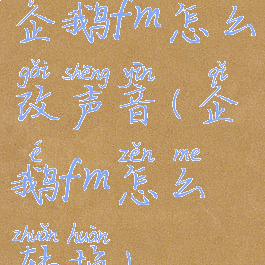 企鹅fm怎么
gǎi shēng yīn qǐ
改声音(企
é zěn me
鹅fm怎么
zhuǎn huàn
转换)